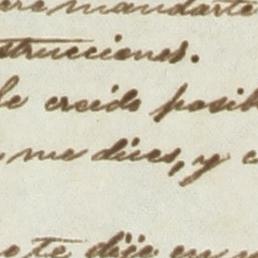 mandarte
strucciones.
le creido posib
me dices, y
te dije en